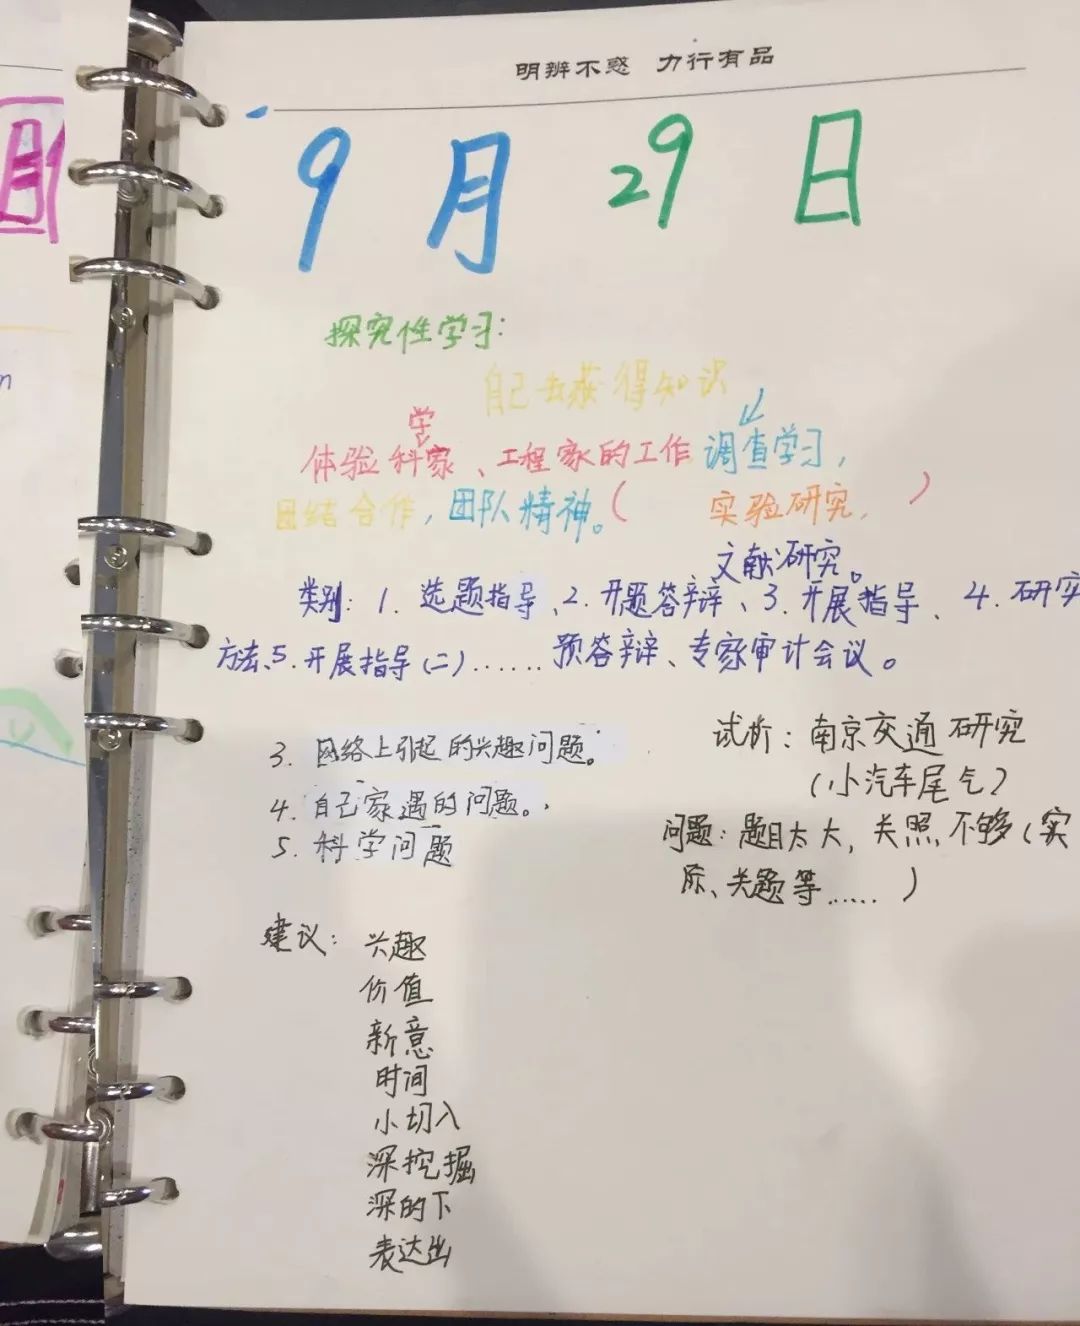 明辨不惑 力行有品
9月29日
探究性学习：
自己去获得知识
体验科学家、工程家的工作 调查学习，
团结合作，团队精神。（ 实验研究， ）
文献研究。
类别：1. 选题指导、2. 开题答辩、3. 开展指导、4. 研究
方法、5. 开展指导（二）……预答辩、专家审计会议。
3. 网络上引起的兴趣问题。
4. 自己家遇的问题。
5. 科学问题
试析：南京交通研究
（小汽车尾气）
问题：题目太大，关照不够（实
际、关题等……）
建议：兴趣
价值
新意
时间
小切入
深挖掘
深的下
表达出